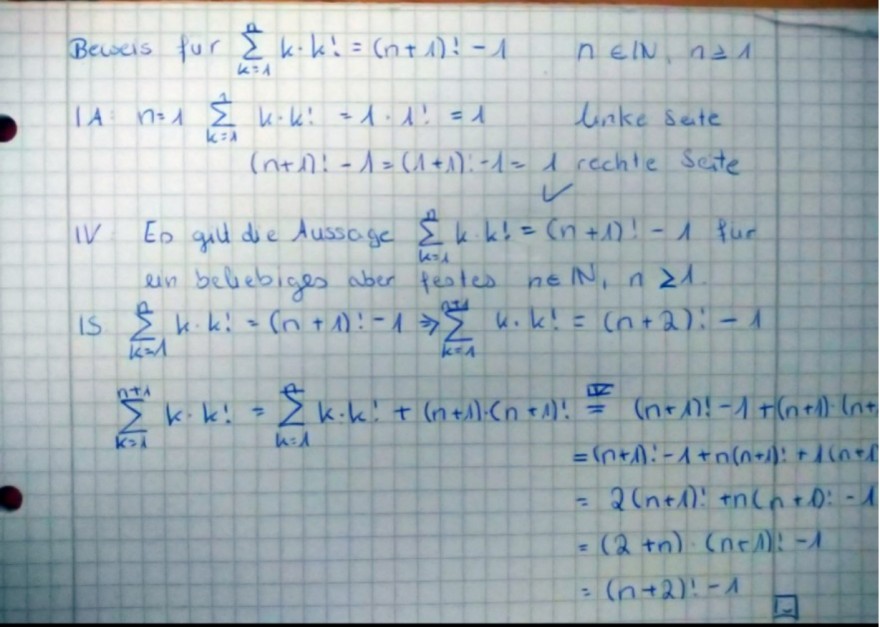 Beweis fur \sum_{k=1}^{n} k·k! = (n+1)! - 1 n ∈ ℕ, n ≥ 1
IA: n=1 \sum_{k=1}^{1} k·k! = 1·1! = 1 linke Seite
(n+1)! - 1 = (1+1)! - 1 = 1 rechte Seite
✓
IV Es gilt die Aussage \sum_{k=1}^{n} k·k! = (n+1)! - 1 fur
ein beliebiges aber festes n ∈ ℕ, n ≥ 1.
IS \sum_{k=1}^{n} k·k! = (n+1)! - 1 ⇒ \sum_{k=1}^{n+1} k·k! = (n+2)! - 1
\sum_{k=1}^{n+1} k·k! = \sum_{k=1}^{n} k·k! + (n+1)·(n+1)! \overset{IV}{=} (n+1)! - 1 + (n+1)·(n+
= (n+1)! - 1 + n(n+1)! + 1(n+1
= 2(n+1)! + n(n+1)! - 1
= (2+n)·(n+1)! - 1
= (n+2)! - 1